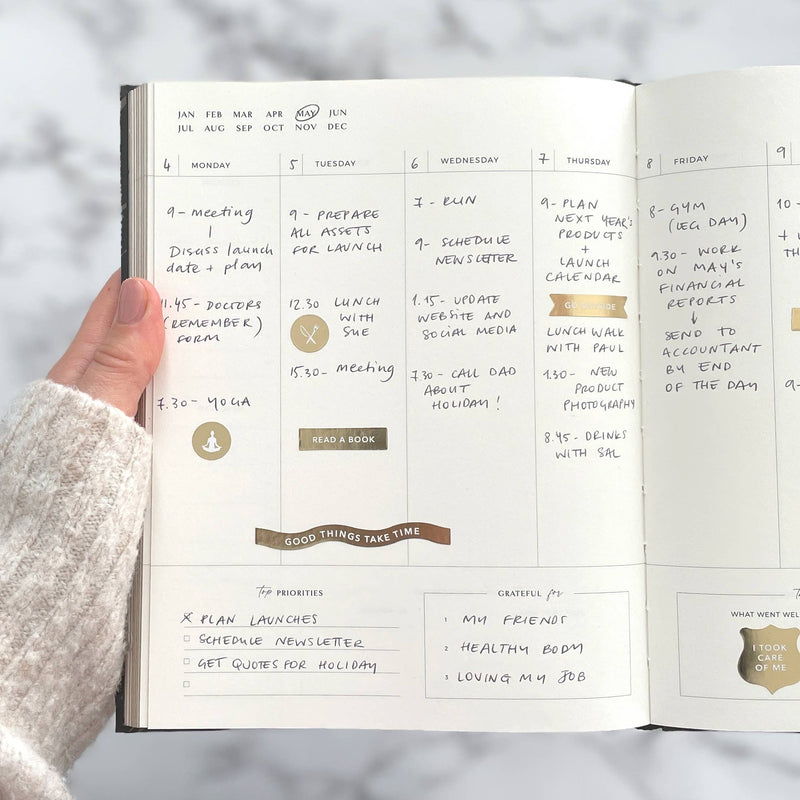 JAN FEB MAR APR MAY JUN
JUL AUG SEP OCT NOV DEC
4 MONDAY
9 - meeting
Disuss launch
date + plan
11.45 - DOCTORS
(REMEMBER)
FORM
7.30 - YOGA
5 TUESDAY
9 - PREPARE
ALL ASSETS
FOR LAUNCH
12.30 LUNCH
WITH
SUE
15.30 - meeting
READ A BOOK
6 WEDNESDAY
7 - RUN
9 - SCHEDULE
NEWSLETTER
1.15 - UPDATE
WEBSITE AND
SOCIAL MEDIA
7.30 - CALL DAD
ABOUT
HOLIDAY!
7 THURSDAY
9 - PLAN
NEXT YEAR'S
PRODUCTS
+
LAUNCH
CALENDAR
LUNCH WALK
WITH PAUL
1.30 - NEW
PRODUCT
PHOTOGRAPHY
8.45 - DRINKS
WITH SAL
GOOD THINGS TAKE TIME
8 FRIDAY
8 - GYM
(LEG DAY)
9.30 - WORK
ON MAY'S
FINANCIAL
REPORTS
↓
SEND TO
ACCOUNTANT
BY END
OF THE DAY
9
10 -
+
9 -
Top PRIORITIES
X PLAN LAUNCHES
SCHEDULE NEWSLETTER
GET QUOTES FOR HOLIDAY
GRATEFUL for
1 MY FRIENDS
2 HEALTHY BODY
3 LOVING MY JOB
WHAT WENT WEL
I TOOK
CARE
OF ME